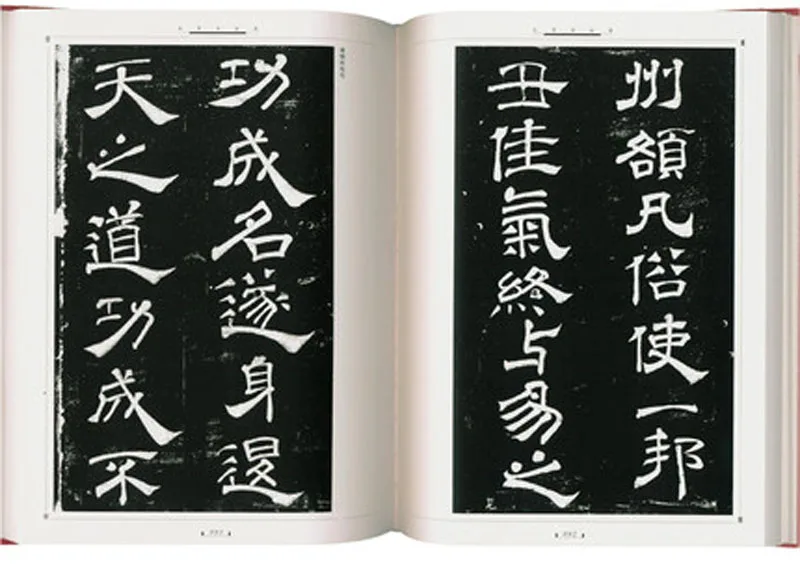 州額凡俗使一邦
丑佳氣終占易之
功成名遂身退
天之道功成不